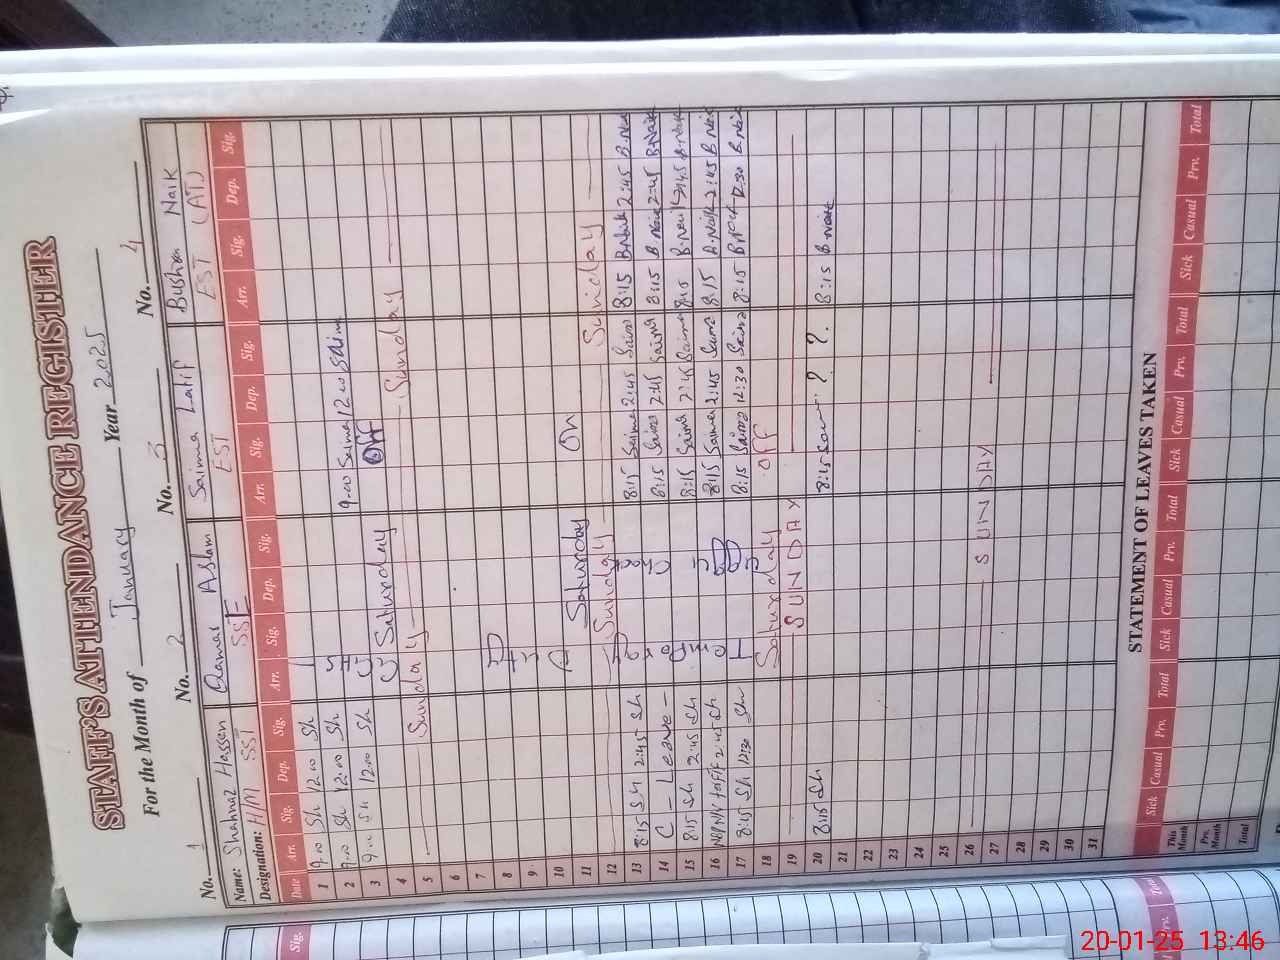 STAFF'S ATTENDANCE REGISTER
For the Month of January Year 2025
No. 1 No. 2 No. 3 No. 4
Name: Shahnaz Hassan Qamar Aslam Saima Latif Bushra Naik
Designation: H/M SST SSE EST EST (AT)
Date Arr. Sig. Dep. Sig. Arr. Sig. Dep. Sig. Arr. Sig. Dep. Sig. Arr. Sig. Dep. Sig.
1 9.00 Sh 12.00 Sh
2 9.00 Sh 12.00 Sh 9.00 Saima 12.00 Saima
3 9.00 Sh 12.00 Sh Off
4 Saturday Sunday
5 Sunday
6
7
8
9
10 On
11 Saturday Sunday
12 Sunday
13 8:15 Sh 2:45 Sh 8:15 Saima 2:45 Saima 8:15 B.Naik 2:45 B.Naik
14 C - Leave - 8:15 Saima 2:45 Saima 8:15 B.Naik 2:45 B.Naik
15 8:15 Sh 2:45 Sh 8:15 Saima 2:45 Saima 8:15 B.Naik 2:45 B.Naik
16 2:45 Sh 8:15 Saima 2:45 Saima 8:15 B.Naik 2:45 B.Naik
17 8:15 Sh 12:30 Sh 8:15 Saima 12:30 Saima 8:15 B.Naik 12:30 B.Naik
18 Saturday Off
19 SUNDAY
20 8:15 Sh 8:15 ? ? 8:15 B.Naik
21
22
23
24
25
26 SUNDAY
27
28
29
30
31
STATEMENT OF LEAVES TAKEN
Sick Casual Prv. Total Sick Casual Prv. Total Sick Casual Prv. Total Sick Casual Prv. Total
This Month
Prv. Month
Total
Sig.
20-01-25 13:46